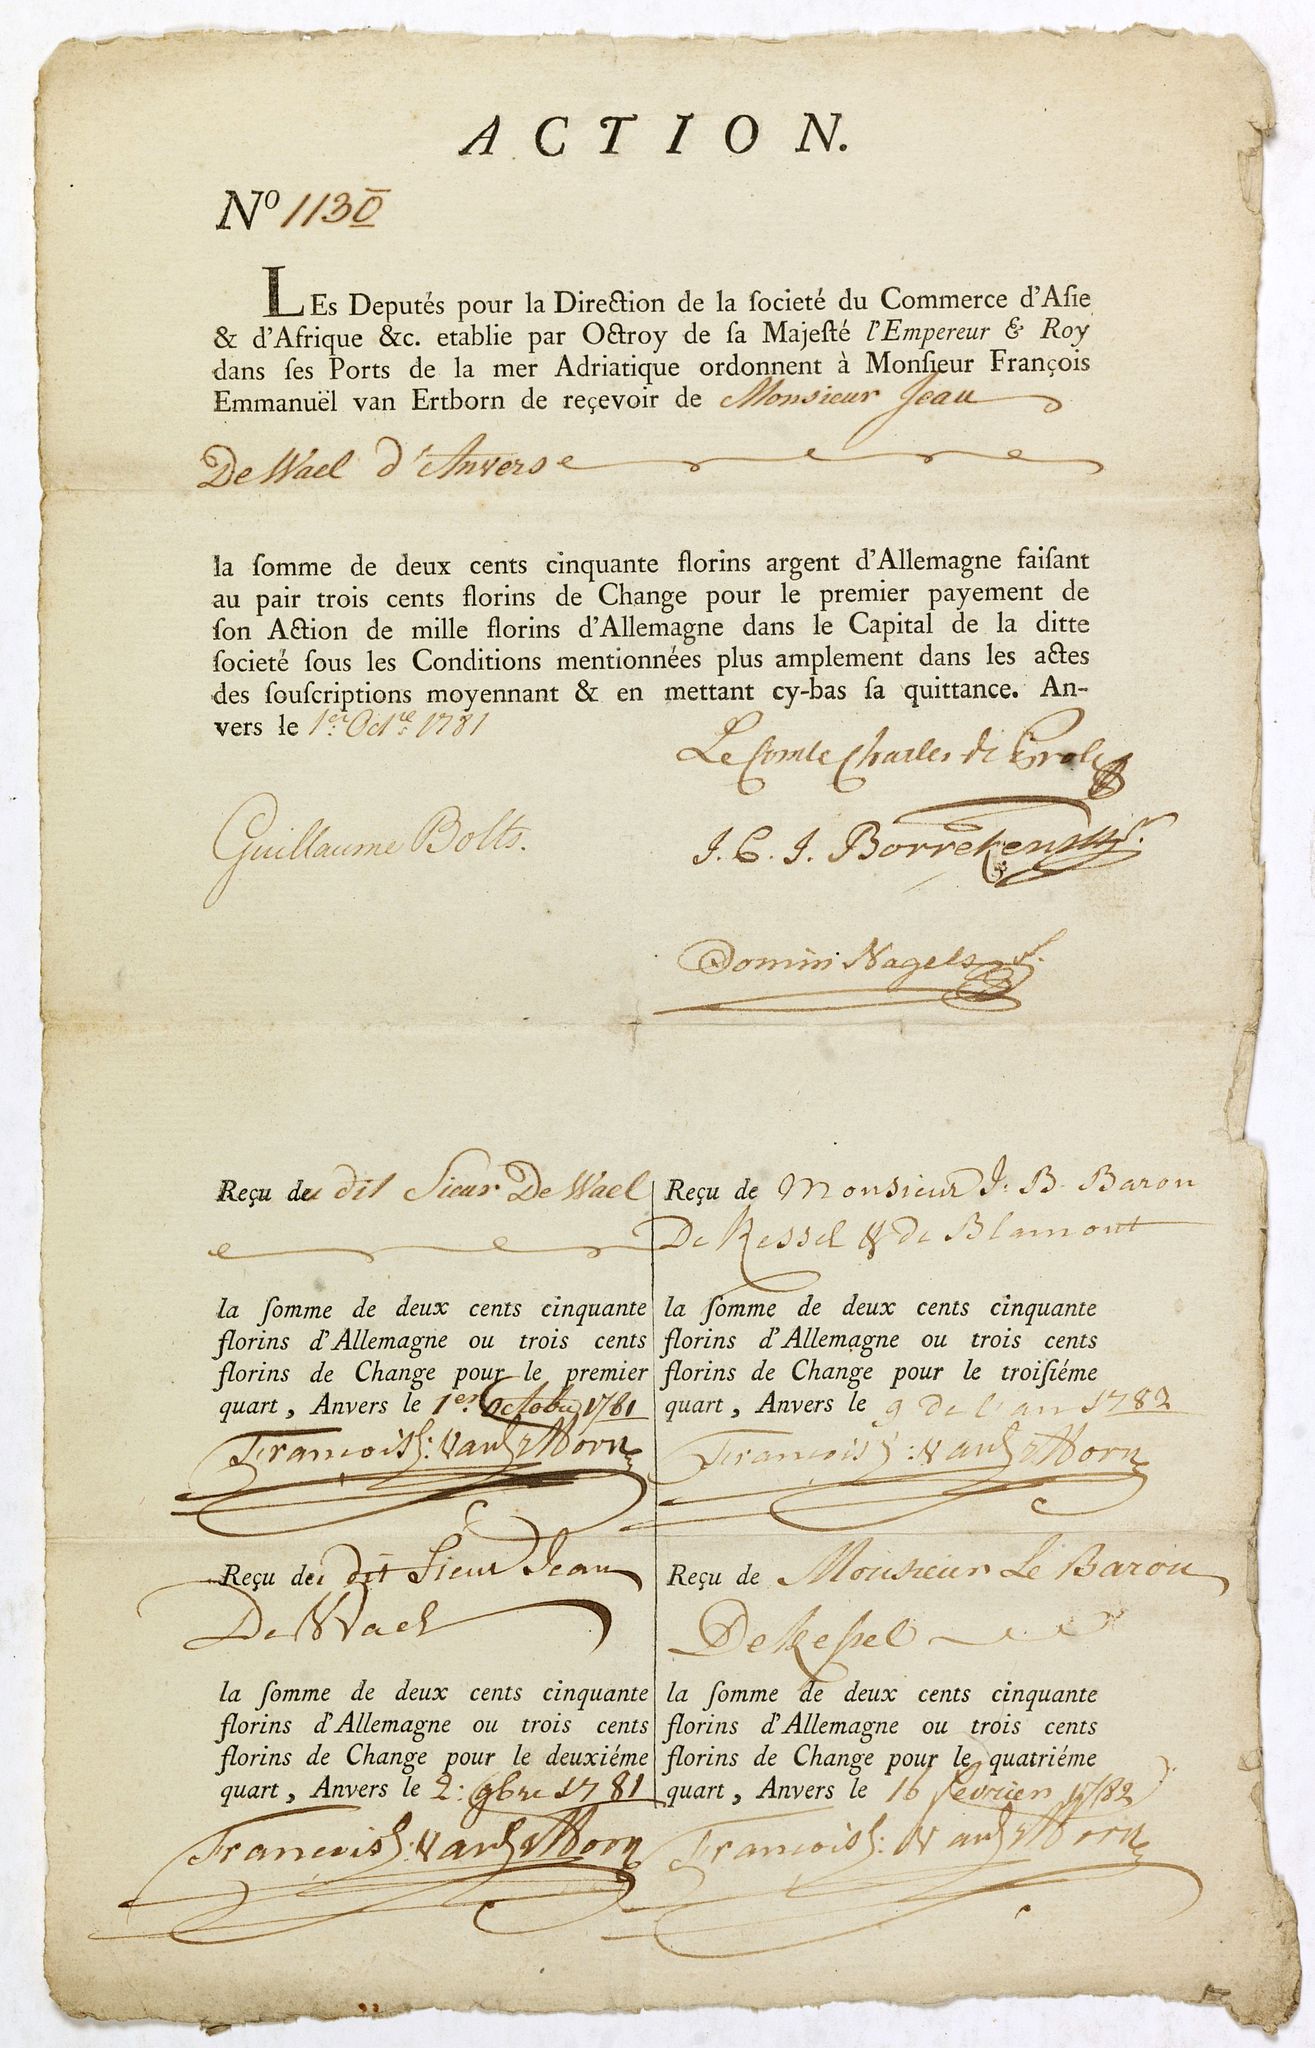 ACTION.
Nº 1130
LEs Deputés pour la Direction de la ſocieté du Commerce d'Aſie
& d'Afrique &c. etablie par Octroy de ſa Majeſté l'Empereur & Roy
dans ſes Ports de la mer Adriatique ordonnent à Monſieur François
Emmanuël van Ertborn de reçevoir de Monsieur Jean
De Wael d'Anvers
la ſomme de deux cents cinquante florins argent d'Allemagne faiſant
au pair trois cents florins de Change pour le premier payement de
ſon Action de mille florins d'Allemagne dans le Capital de la ditte
ſocieté ſous les Conditions mentionnées plus amplement dans les actes
des ſouſcriptions moyennant & en mettant cy-bas ſa quittance. An-
vers le 1er. Octre 1781
Le Comte Charles de Proli
Guillaume Bolts.
J. C. J. Borrekens
Domin Nagels
Reçu du dit Sieur De Wael
la ſomme de deux cents cinquante
florins d'Allemagne ou trois cents
florins de Change pour le premier
quart, Anvers le 1er. Octobre 1781
François E: van Ertborn
Reçu de Monsieur J. B. Baron
De Kessel & de Blamont
la ſomme de deux cents cinquante
florins d'Allemagne ou trois cents
florins de Change pour le troiſiéme
quart, Anvers le 9 de l'an 1782
François E: van Ertborn
Reçu du dit Sieur Jean
De Wael
la ſomme de deux cents cinquante
florins d'Allemagne ou trois cents
florins de Change pour le deuxiéme
quart, Anvers le 2: 9bre 1781
François E: van Ertborn
Reçu de Monsieur Le Baron
De Keſſel
la ſomme de deux cents cinquante
florins d'Allemagne ou trois cents
florins de Change pour le quatriéme
quart, Anvers le 16 fevrier 1782
François E: van Ertborn